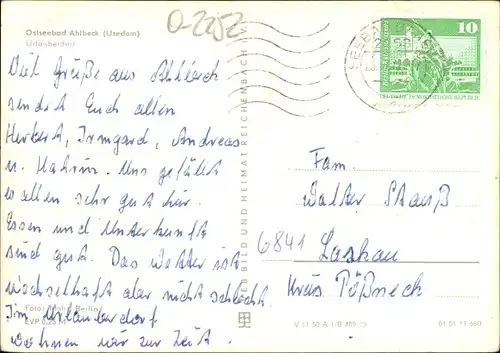 Ostseebad Ahlbeck (Usedom)
Urlauberdorf
0-2252
10
Viel Grüße aus Ahlbeck
sendet Euch allen
Herbert, Irmgard, Andreas
u. Katrin. Uns gefällt
es allen sehr gut hier.
Essen und Unterkunft
sind gut. Das Wetter ist
wechselhaft aber nicht schlecht.
Im Urlauberdorf
wohnen wir zur Zeit.
Berlin
EVP 0,25 M
VEB BILD UND HEIMAT REICHENBACH I. V.
DEUTSCHE DEMOKRATISCHE REPUBLIK
Fam.
Walter Stauß
6841 Laskau
Kreis Pößneck
V 11 50 A 1/B
01 01 11 660